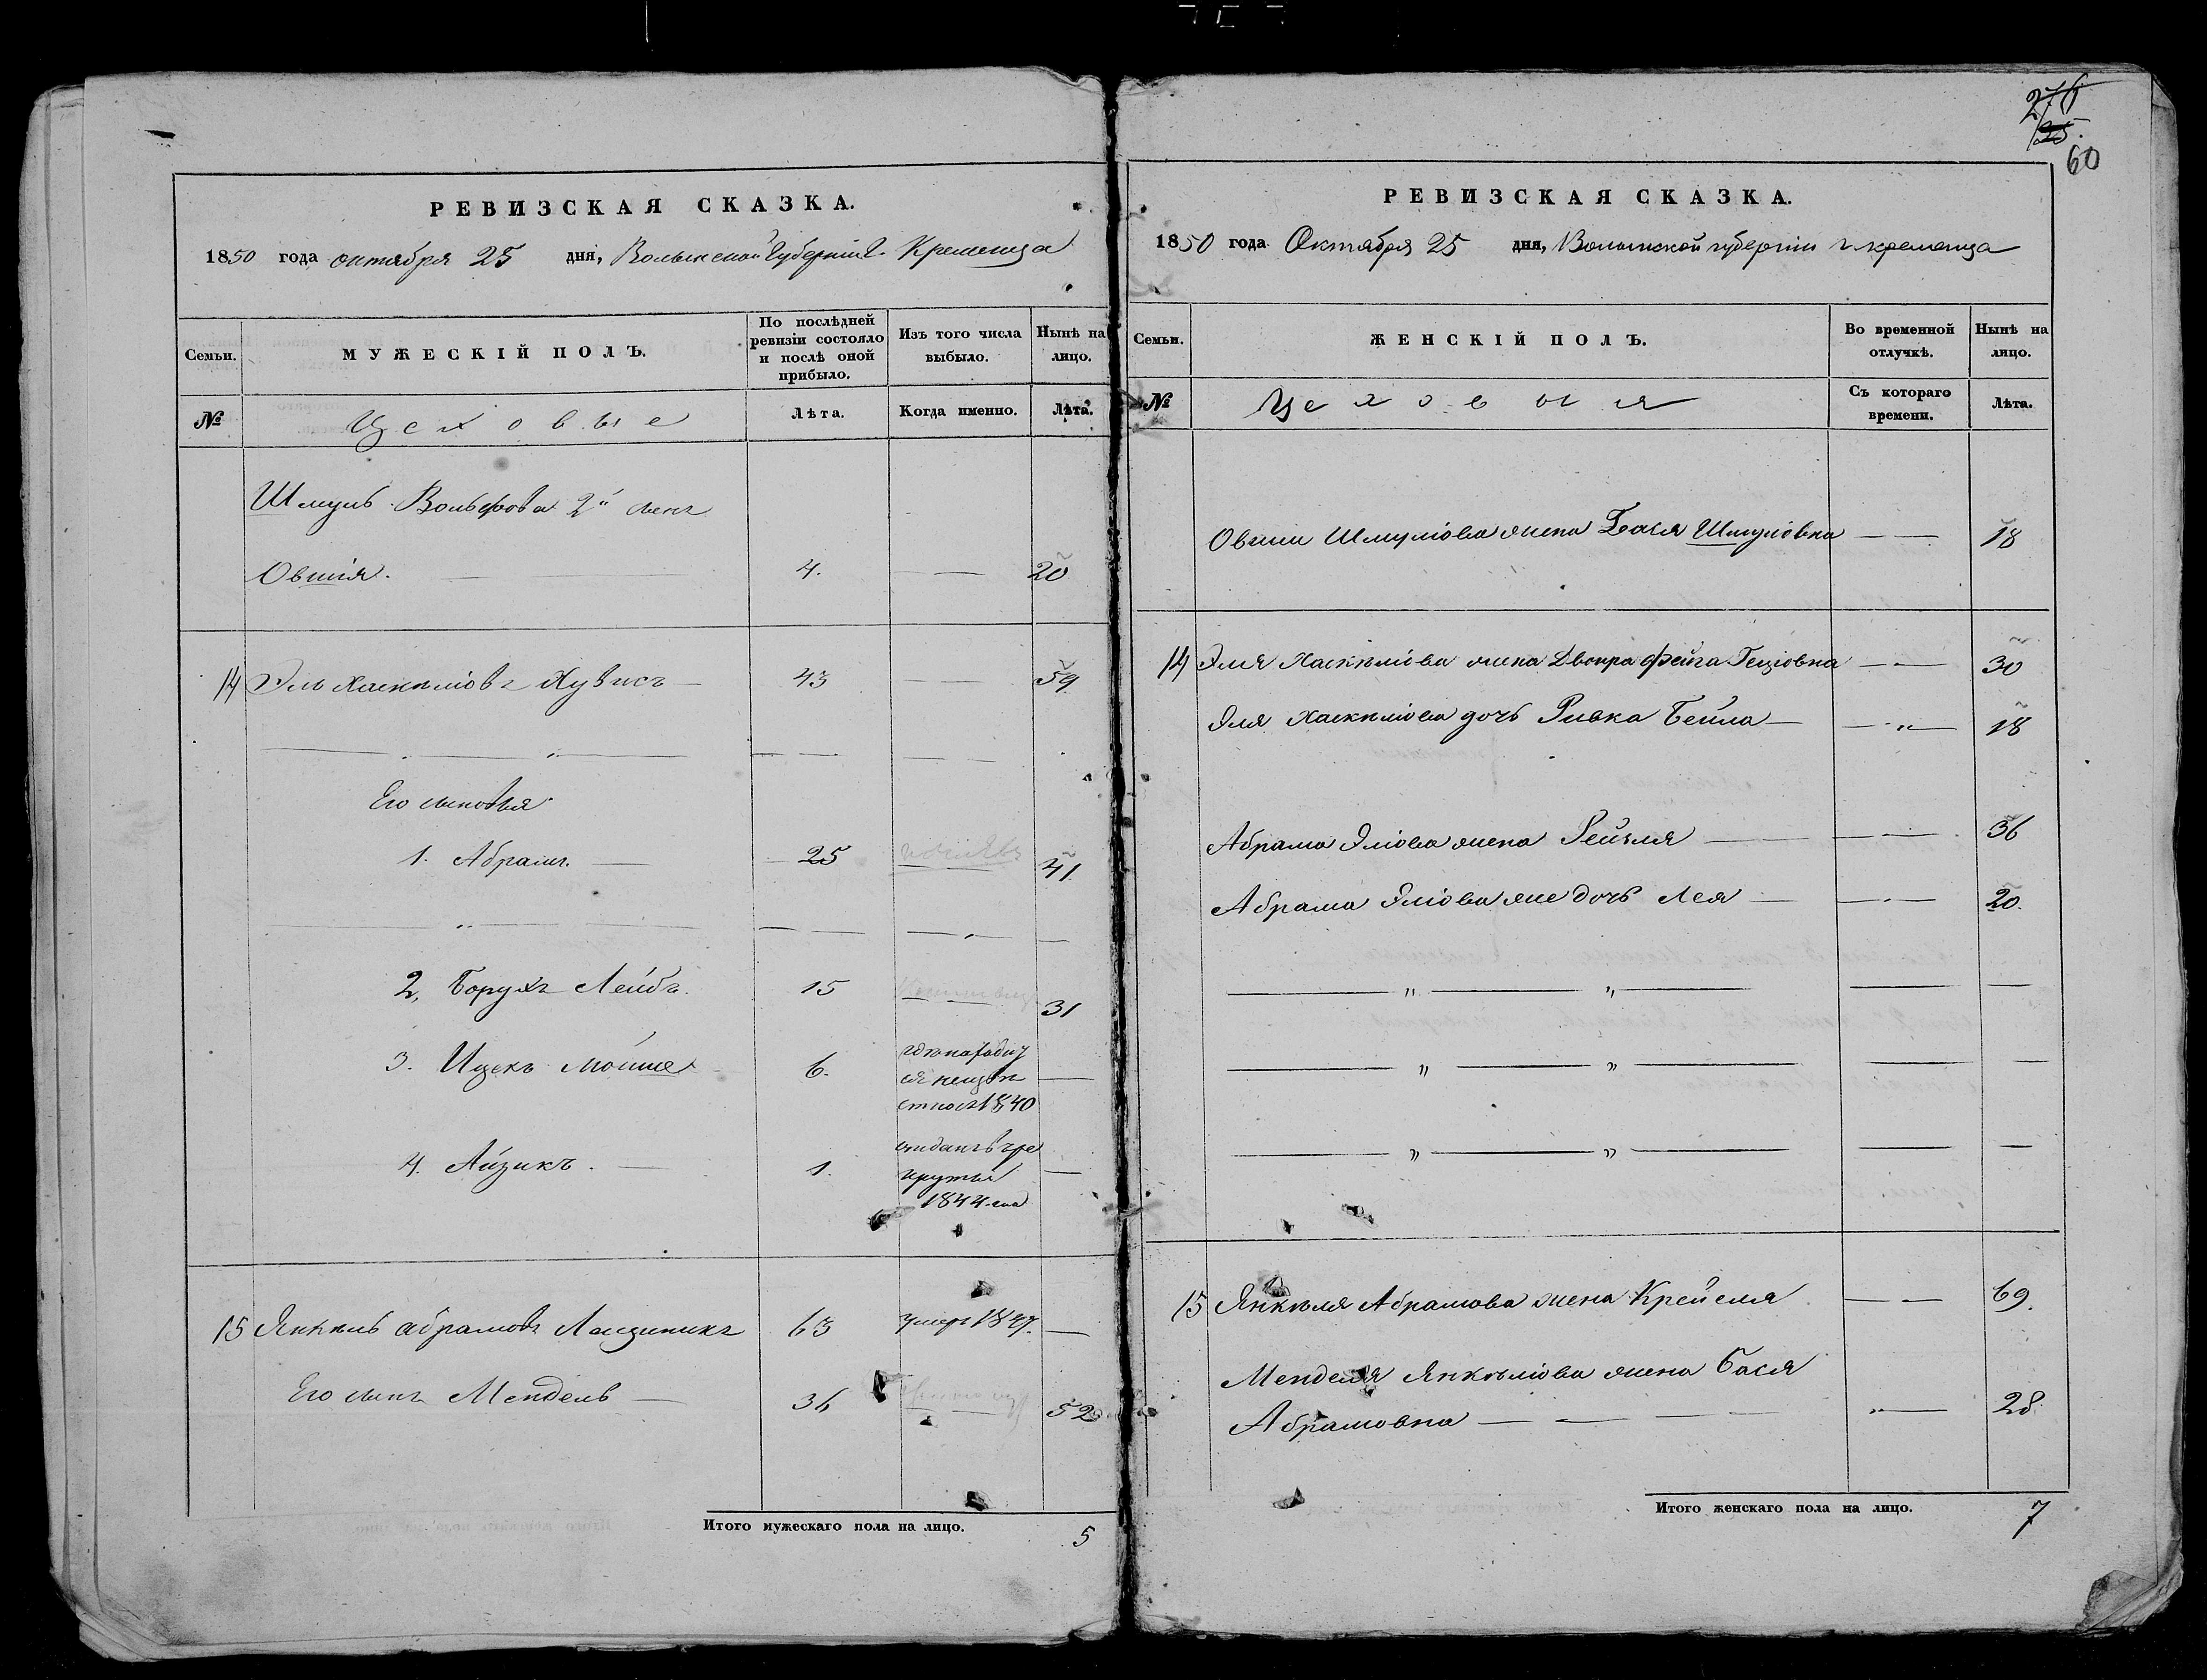 276
25.
60
РЕВИЗСКАЯ СКАЗКА.
1850 года октября 25 дня, Волынской губерніи г. Кременца
Семьи.
МУЖЕСКІЙ ПОЛЪ.
По послѣдней ревизіи состояло и послѣ оной прибыло.
Изъ того числа выбыло.
Нынѣ на лицо.
№
Цеховые
Лѣта.
Когда именно.
Лѣта.
Шмуль Вольфова 2й сынъ
Овшія. 4. 20
14 Эль Хаскелiовъ 43 59
Его сыновья
1. Абрамъ. 25 41
2. Борухъ Лейбъ. 15 31
3. Ицекъ Мошне 6. гдѣ находит
ся неизвѣ
стно съ 1840
4. Айзикъ. 1. отданъ въ ре
круты
1844-го
15 Янкель Абрамовъ 63 умеръ 1847.
Его сынъ Мендель 36 52
Итого мужескаго пола на лицо. 5
РЕВИЗСКАЯ СКАЗКА.
1850 года Октября 25 дня, Волынской губерніи г кременца
Семьи.
ЖЕНСКІЙ ПОЛЪ.
Во временной отлучкѣ.
Нынѣ на лицо.
№
Цеховыя
Съ котораго времени.
Лѣта.
Овши Шмуліова жена Бася Шмуліовна 18
14 Эля Хаскеліова жена Двойра Фейга Гецiовна 30
Эля Хаскеліова дочь Ривка Бейла 18
Абрама Эліова жена Рейзля 36
Абрама Эліова же дочь Лея 20.
15 Янкеля Абрамова жена Крейселя 69.
Менделя Янкеліова жена Бася
Абрамовна 28.
Итого женскаго пола на лицо. 7